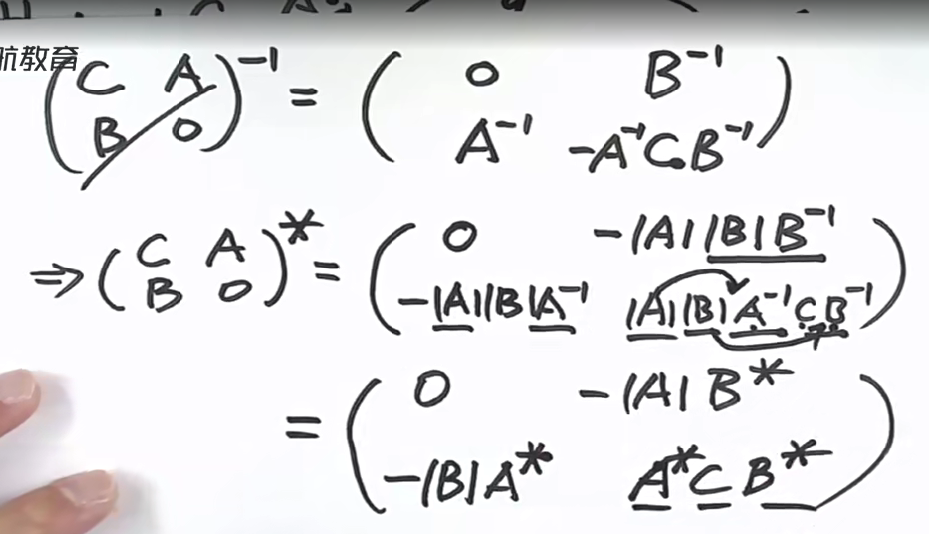 航教育
(C A; B 0)⁻¹ = (0 B⁻¹; A⁻¹ -A⁻¹CB⁻¹)
⇒ (C A; B 0)* = (0 -|A||B|B⁻¹; -|A||B|A⁻¹ |A||B|A⁻¹CB⁻¹)
= (0 -|A|B*; -|B|A* A*CB*)